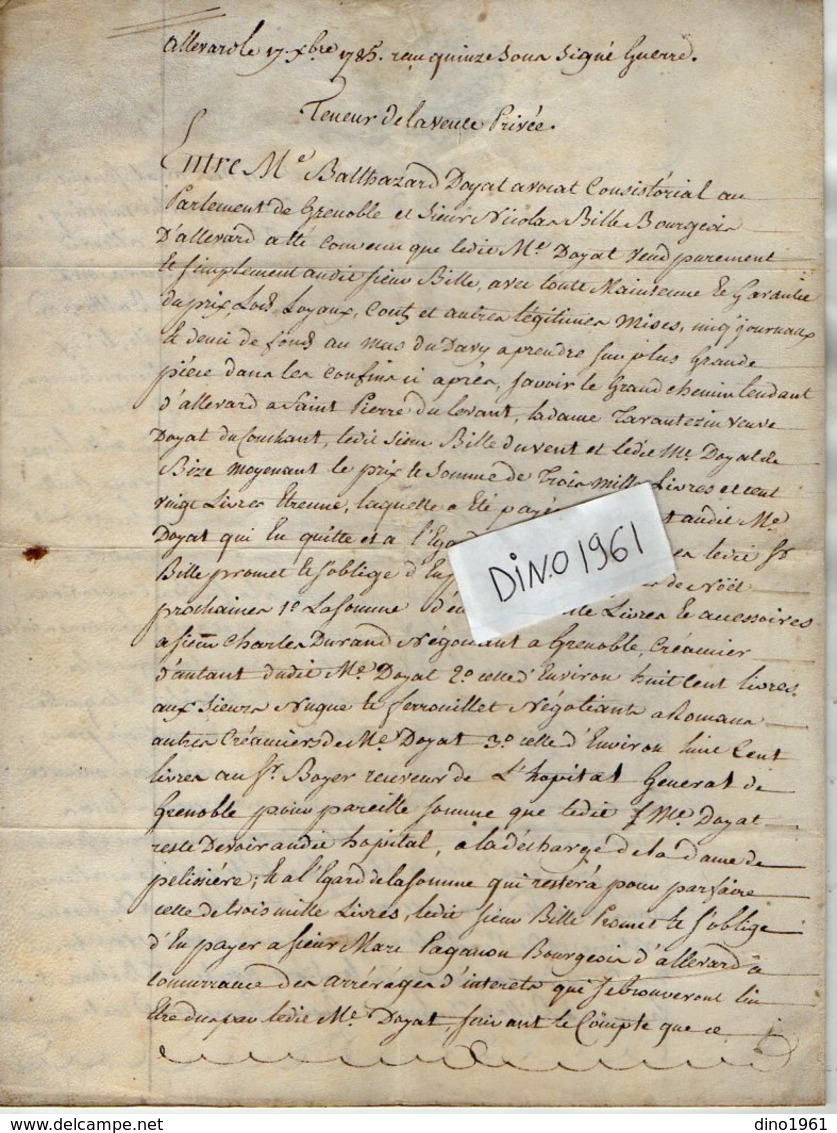 allevard le 17 xbre 1785. reçu quinze sous signé Guerre.
Teneur de la vente Privée.
Entre Me Balthazard Doyat avocat Consistorial au
Parlement de Grenoble et Sieur Nicolas Bille Bourgeois
D'allevard a été convenu que ledit Me Doyat vend purement
et simplement audit sieur Bille, avec toute Maintenue et Garantie
du prix, Lods, Loyaux, Couts et autres légitimes mises, cinq journaux
et demi de fond au mas du Davy a prendre sur plus Grande
piéce dans les confins ci après, savoir le Grand chemin tendant
d'allevard a Saint Pierre du levant, la dame Tarantezin veuve
Doyat du Couchant, ledit sieur Bille du vent et ledit Me Doyat de
Bize moyenant le prix et somme de Trois mille Livres et cent
vingt Livres Etrenne, laquelle a Eté payé audit Me
Doyat qui En quitte et a l'Egard ledit Sr
Bille promet et s'oblige d'En de Noël
prochaines 1o La somme Livres et accessoires
a sieur Charles Durand Négotiant a Grenoble, Créancier
d'autant dudit Me Doyat 2o celle d'Environ huit Cent livres
aux Sieurs Nugue et ferrouillet Négotiants a Romans
autres Créanciers de Me Doyat 3o celle d'Environ huit Cent
livres au Sr Boyer receveur de L'hopital General de
Grenoble pour pareille somme que ledit Me Doyat
reste Devoir audit hopital, a la décharge de la dame de
pelissiére; et a l'Egard de la somme qui restera pour parfaire
celle de trois mille Livres, ledit sieur Bille Promet et s'oblige
d'En payer a sieur Marc Paganon Bourgeois d'allevard a
concurrance des arrérages d'interets qui se trouveront lui
Etre dus par ledit Me Doyat, suivant le Compte que ce
DiN.O 1961
dino1961